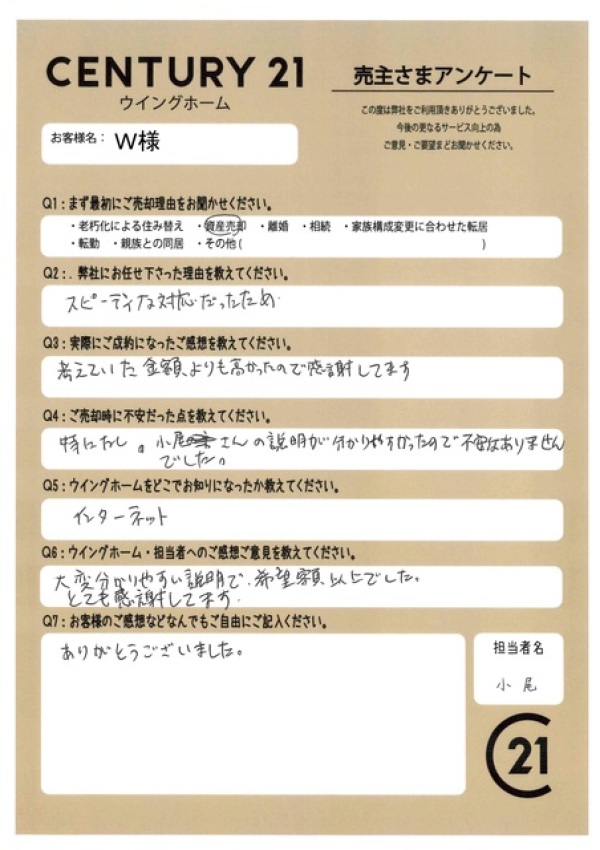 CENTURY 21
ウイングホーム
売主さまアンケート
この度は弊社をご利用頂きありがとうございました。
今後の更なるサービス向上の為
ご意見・ご要望まどお聞かせください。
お客様名： W様
Q1：まず最初にご売却理由をお聞かせください。
・老朽化による住み替え ・資産売却 ・離婚 ・相続 ・家族構成変更に合わせた転居
・転勤 ・親族との同居 ・その他（ ）
Q2：．弊社にお任せ下さった理由を教えてください。
スピーディな対応だったため
Q3：実際にご成約になったご感想を教えてください。
考えていた金額よりも高かったので感謝してます
Q4：ご売却時に不安だった点を教えてください。
特になし。小尾さんの説明が分かりやすかったので不安なありません
でした。
Q5：ウイングホームをどこでお知りになったか教えてください。
インターネット
Q6：ウイングホーム・担当者へのご感想ご意見を教えてください。
大変分かりやすい説明で、希望額以上でした。
とても感謝してます.
Q7：お客様のご感想などなんでもご自由にご記入ください。
ありがとうございました。
担当者名
小尾
C21